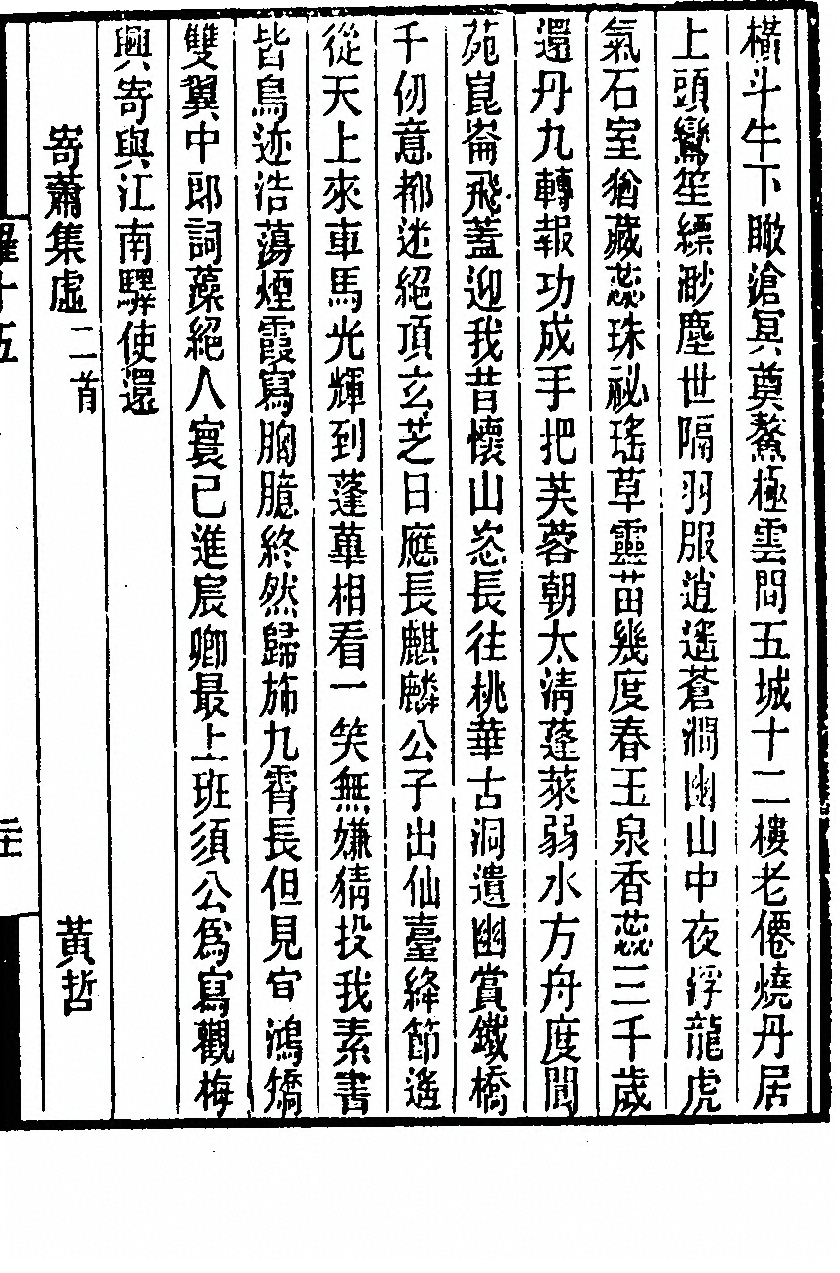 橫斗牛下瞰滄冥奠鰲極雲間五城十二樓老僊燒丹居
上頭鸞笙縹渺塵世隔羽服逍遙蒼澗幽山中夜浮龍虎
氣石室猶藏蕊珠祕瑤草靈苗幾度春玉泉香蕊三千歲
還丹九轉報功成手把芙蓉朝太淸蓬萊弱水方舟度閬
苑崑崙飛蓋迎我昔懷山恣長往桃華古洞遺幽賞鐵橋
千仞意都迷絕頂玄芝日應長麒麟公子出仙臺絳節遙
從天上來車馬光輝到蓬蓽相看一笑無嫌猜投我素書
皆鳥迹浩蕩煙霞寫胸臆終然歸斾九霄長但見㝠鴻矯
雙翼中郎詞藻絕人寰已進宸卿最上班須公爲寫觀梅
興寄與江南驛使還
寄蕭集虛二首 黃哲